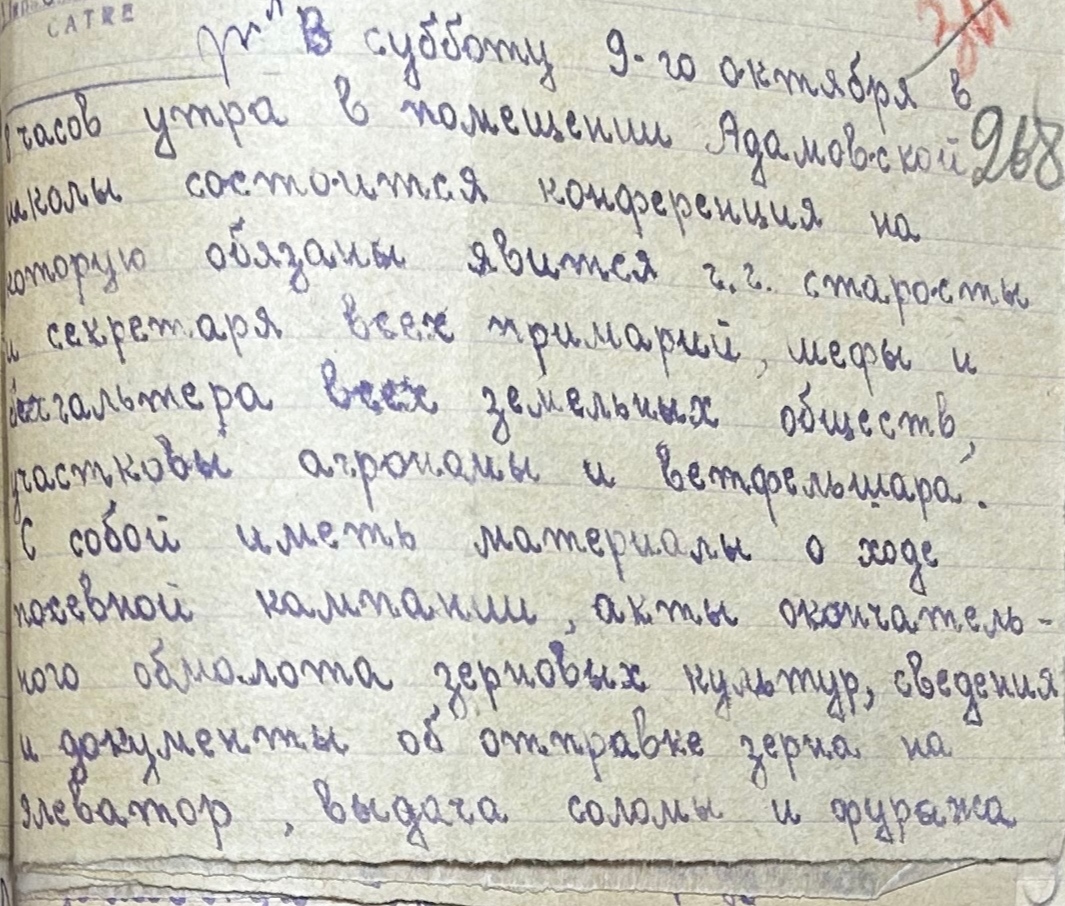 CATRE
В субботу 9-го октября в
8 часов утра в помещении Адамовской
268
школы состоится конференция на
которую обязаны явится г.г. старосты
и секретаря всех примарий, шефы и
бухгальтера всех земельных обществ,
участковы агрономы и ветфельшара.
С собой иметь материалы о ходе
посевной кампании, акты окончатель-
ного обмолота зерновых культур, сведения
и документы об отправке зерна на
элеватор, выдача соломы и фуража